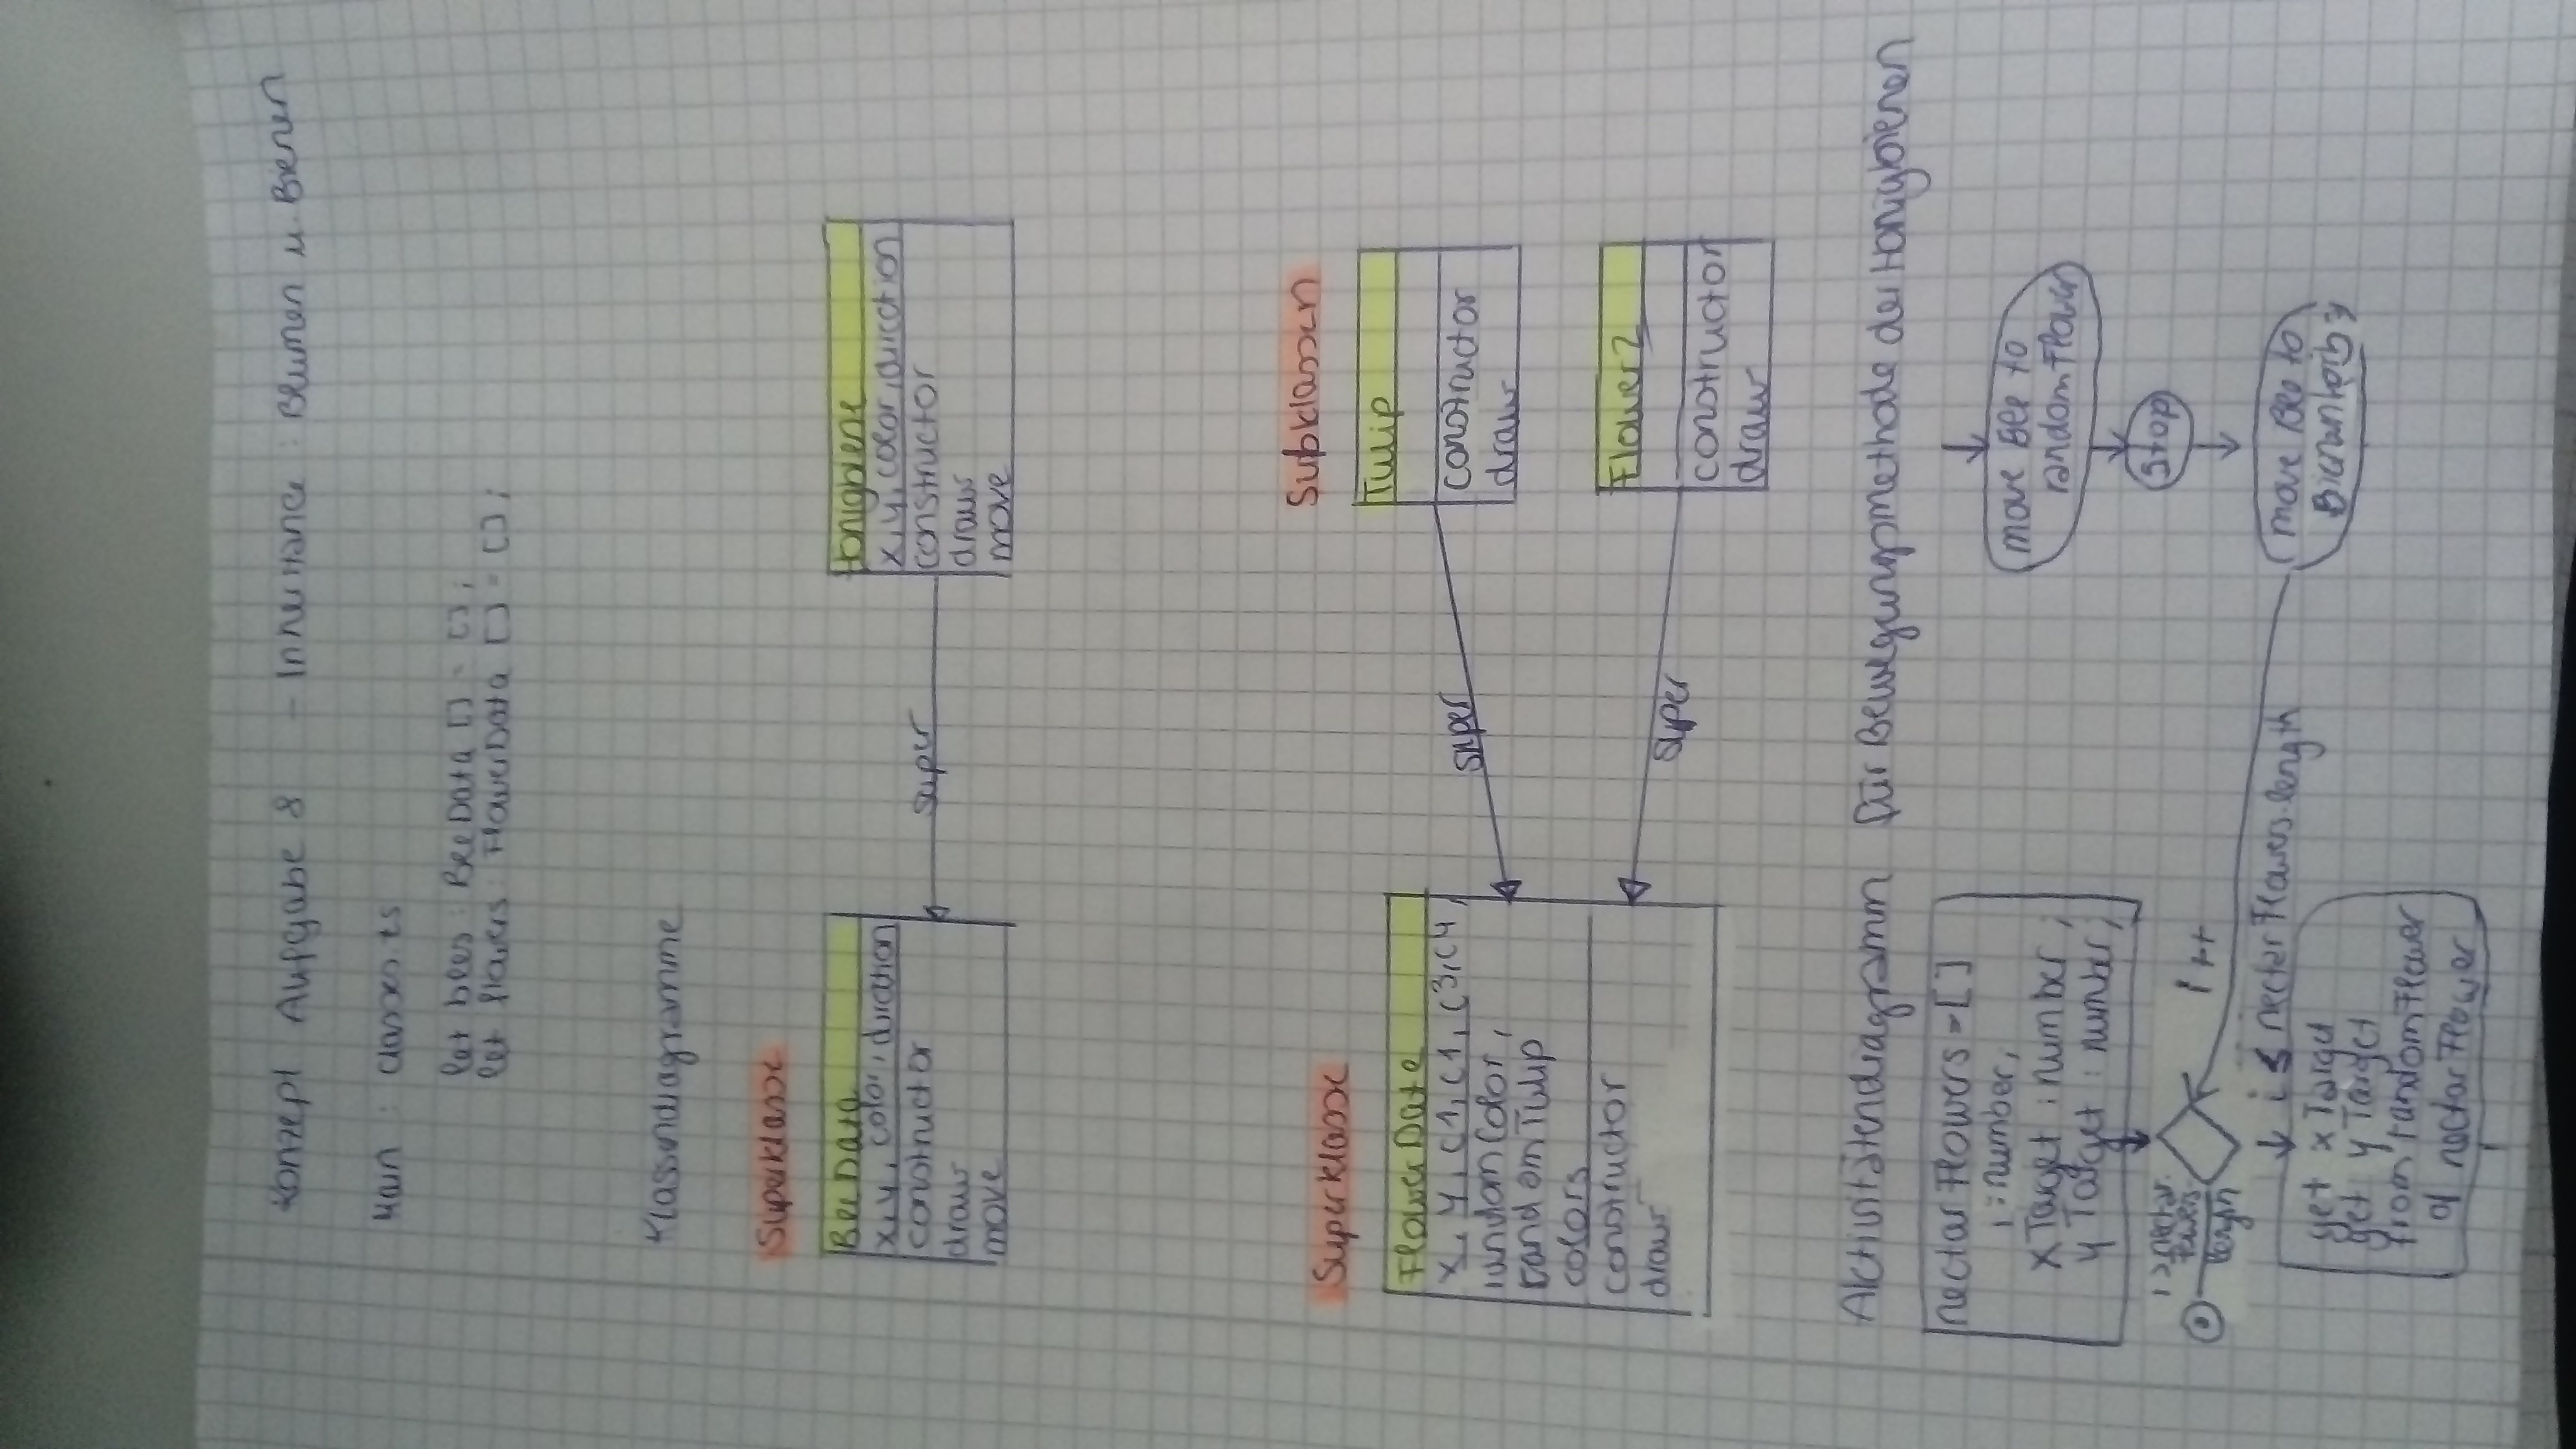 Konzept Aufgabe 8 - Inheritance : Blumen u. Bienen
Main : classes.ts
let bees : BeeData [] = [];
let flowers : FlowerData [] = [];
Klassendiagramme
Superklasse
BeeData
x, y, color, direction
constructor
draw
move
super
Honigbiene
x, y, color, direction
constructor
draw
move
Superklasse
FlowerDate
x, y, c1, c1, c3, c4,
randomColor,
randomTulip
colors
constructor
draw
super
super
Subklassen
Tulip
constructor
draw
Flower2
constructor
draw
Aktivitätendiagramm für Bewegungsmethode der Honigbienen
nectarFlowers = []
i : number;
xTarget : number;
yTarget : number;
i > nectar.
flowers.
length
i++
i ≤ nectarFlowers.length
get xTarget
get yTarget
from randomFlower
of nectarFlower
move Bee to
randomFlower
Stop
move Bee to